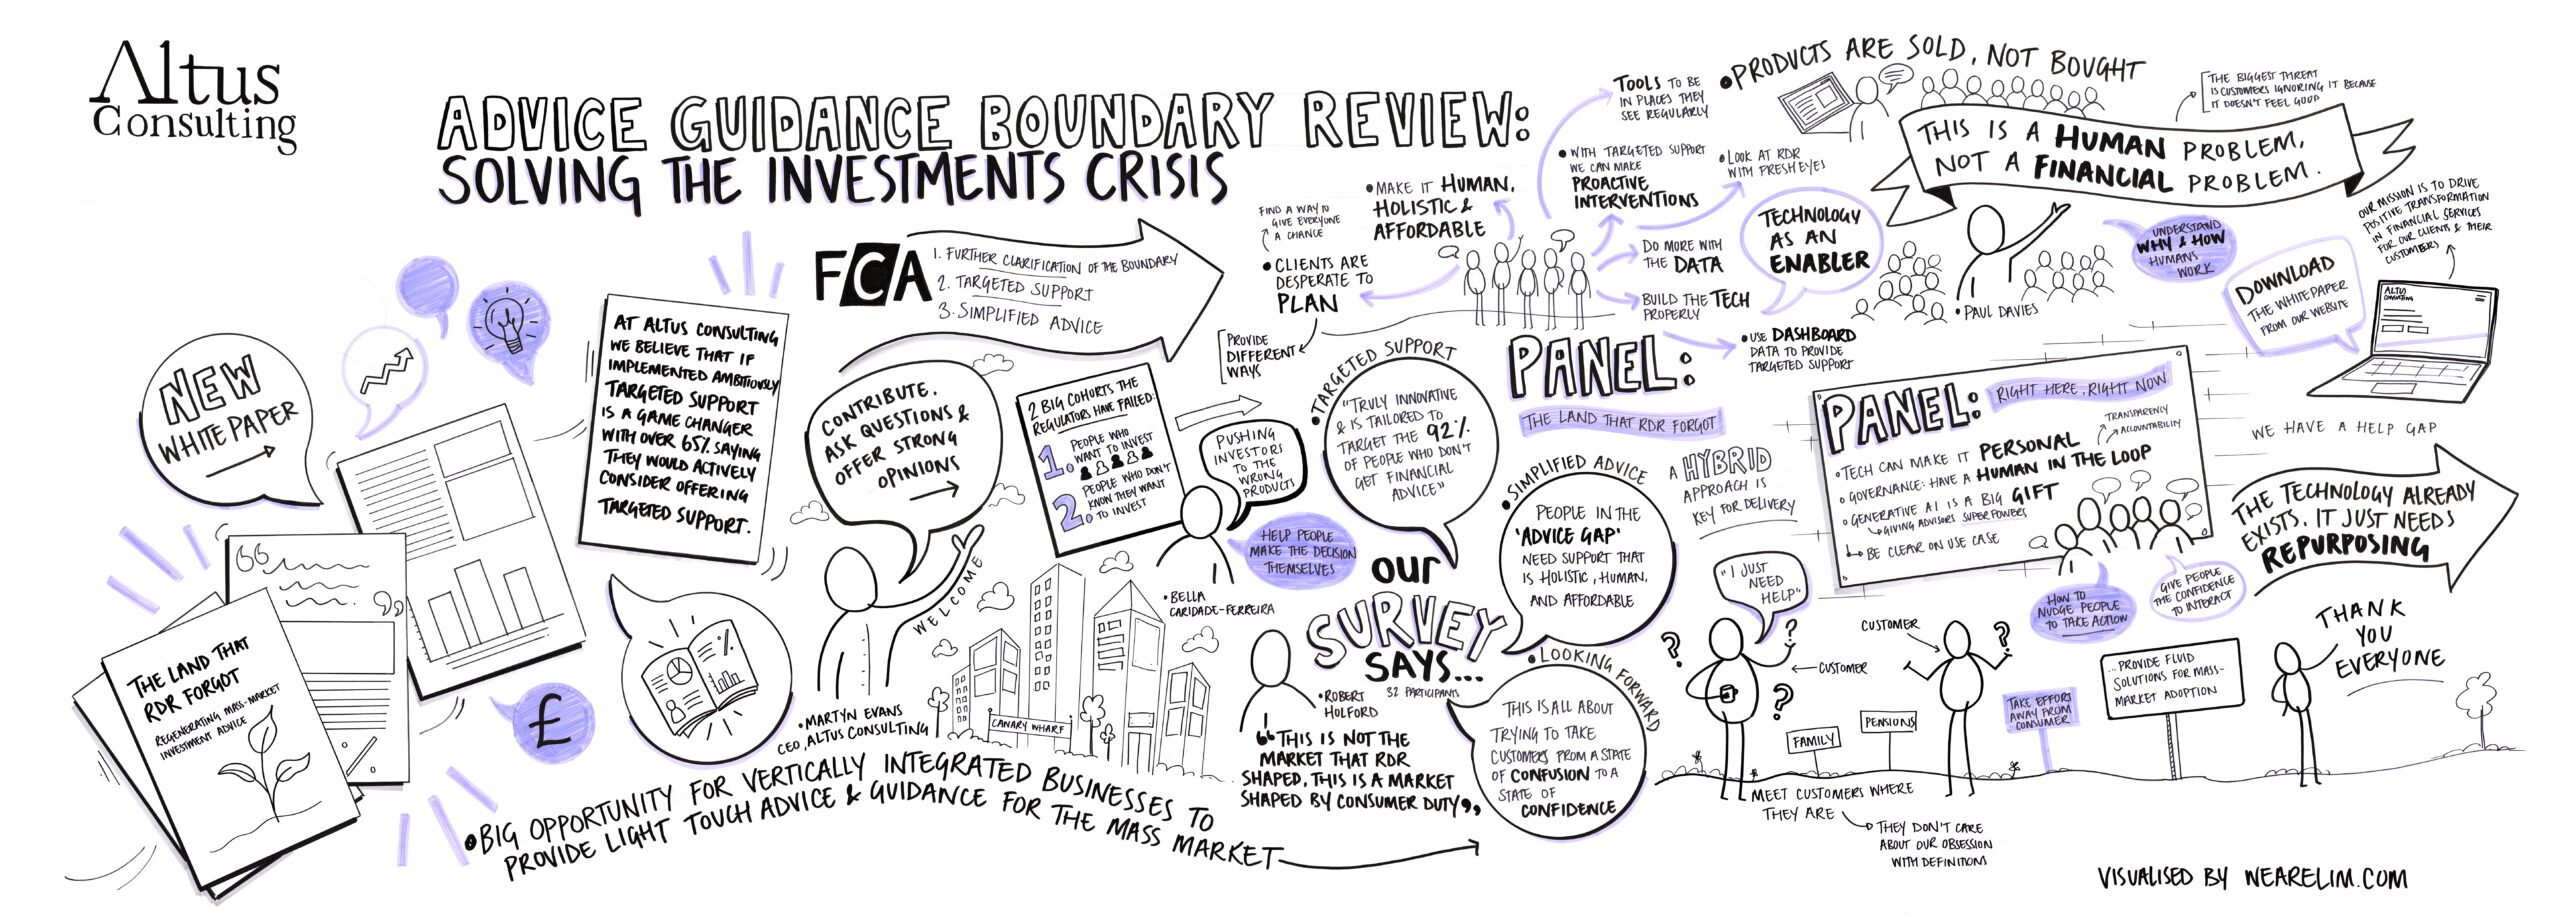 Altus
Consulting
ADVICE GUIDANCE BOUNDARY REVIEW:
SOLVING THE INVESTMENTS CRISIS
NEW
WHITE PAPER
THE LAND THAT
RDR FORGOT
REGENERATING MASS-MARKET
INVESTMENT ADVICE
£
AT ALTUS CONSULTING
WE BELIEVE THAT IF
IMPLEMENTED AMBITIOUSLY
TARGETED SUPPORT
IS A GAME CHANGER
WITH OVER 65% SAYING
THEY WOULD ACTIVELY
CONSIDER OFFERING
TARGETED SUPPORT.
%
FCA
1. FURTHER CLARIFICATION OF THE BOUNDARY
2. TARGETED SUPPORT
3. SIMPLIFIED ADVICE
CONTRIBUTE.
ASK QUESTIONS &
OFFER STRONG
OPINIONS
WELCOME
• MARTYN EVANS
CEO, ALTUS CONSULTING
CANARY WHARF
• BIG OPPORTUNITY FOR VERTICALLY INTEGRATED BUSINESSES TO
PROVIDE LIGHT TOUCH ADVICE & GUIDANCE FOR THE MASS MARKET
2 BIG COHORTS THE
REGULATORS HAVE FAILED:
1. PEOPLE WHO
WANT TO INVEST
2. PEOPLE WHO DON'T
KNOW THEY WANT
TO INVEST
PUSHING
INVESTORS
TO THE
WRONG
PRODUCTS
HELP PEOPLE
MAKE THE DECISION
THEMSELVES
• BELLA
CARIDADE-FERREIRA
OUR
SURVEY
SAYS...
32 PARTICIPANTS
• ROBERT
HOLFORD
“THIS IS NOT THE
MARKET THAT RDR
SHAPED, THIS IS A MARKET
SHAPED BY CONSUMER DUTY”
• TARGETED SUPPORT
"TRULY INNOVATIVE
& IS TAILORED TO
TARGET THE 92%
OF PEOPLE WHO DON'T
GET FINANCIAL
ADVICE"
• SIMPLIFIED ADVICE
PEOPLE IN THE
'ADVICE GAP'
NEED SUPPORT THAT
IS HOLISTIC, HUMAN,
AND AFFORDABLE
• LOOKING FORWARD
THIS IS ALL ABOUT
TRYING TO TAKE
CUSTOMERS FROM A STATE
OF CONFUSION TO A
STATE OF
CONFIDENCE
PANEL:
THE LAND THAT RDR FORGOT
FIND A WAY TO
GIVE EVERYONE
A CHANCE
• CLIENTS ARE
DESPERATE TO
PLAN
PROVIDE
DIFFERENT
WAYS
• MAKE IT HUMAN,
HOLISTIC &
AFFORDABLE
TOOLS TO BE
IN PLACES THEY
SEE REGULARLY
• WITH TARGETED SUPPORT
WE CAN MAKE
PROACTIVE
INTERVENTIONS
• LOOK AT RDR
WITH FRESH EYES
DO MORE WITH
THE DATA
BUILD THE TECH
PROPERLY
• USE DASHBOARD
DATA TO PROVIDE
TARGETED SUPPORT
TECHNOLOGY
AS AN
ENABLER
• PRODUCTS ARE SOLD, NOT BOUGHT
THE BIGGEST THREAT
IS CUSTOMERS IGNORING IT BECAUSE
IT DOESN'T FEEL GOOD
THIS IS A HUMAN PROBLEM,
NOT A FINANCIAL PROBLEM.
• PAUL DAVIES
UNDERSTAND
WHY & HOW
HUMANS
WORK
OUR MISSION IS TO DRIVE
POSITIVE TRANSFORMATION
IN FINANCIAL SERVICES
FOR OUR CLIENTS & THEIR
CUSTOMERS
DOWNLOAD
THE WHITEPAPER
FROM OUR WEBSITE
ALTUS
CONSULTING
A HYBRID
APPROACH IS
KEY FOR DELIVERY
PANEL:
RIGHT HERE, RIGHT NOW
TRANSPARENCY
ACCOUNTABILITY
• TECH CAN MAKE IT PERSONAL
• GOVERNANCE: HAVE A HUMAN IN THE LOOP
• GENERATIVE AI IS A BIG GIFT
GIVING ADVISORS SUPER POWERS
BE CLEAR ON USE CASE
HOW TO
NUDGE PEOPLE
TO TAKE ACTION
GIVE PEOPLE
THE CONFIDENCE
TO INTERACT
WE HAVE A HELP GAP
THE TECHNOLOGY ALREADY
EXISTS. IT JUST NEEDS
REPURPOSING
"I JUST
NEED
HELP"
?
?
?
CUSTOMER
CUSTOMER
?
FAMILY
PENSIONS
MEET CUSTOMERS WHERE
THEY ARE
THEY DON'T CARE
ABOUT OUR OBSESSION
WITH DEFINITIONS
TAKE EFFORT
AWAY FROM
CONSUMER
...PROVIDE FLUID
SOLUTIONS FOR MASS-
MARKET ADOPTION
THANK
YOU
EVERYONE
VISUALISED BY WEARELIM.COM